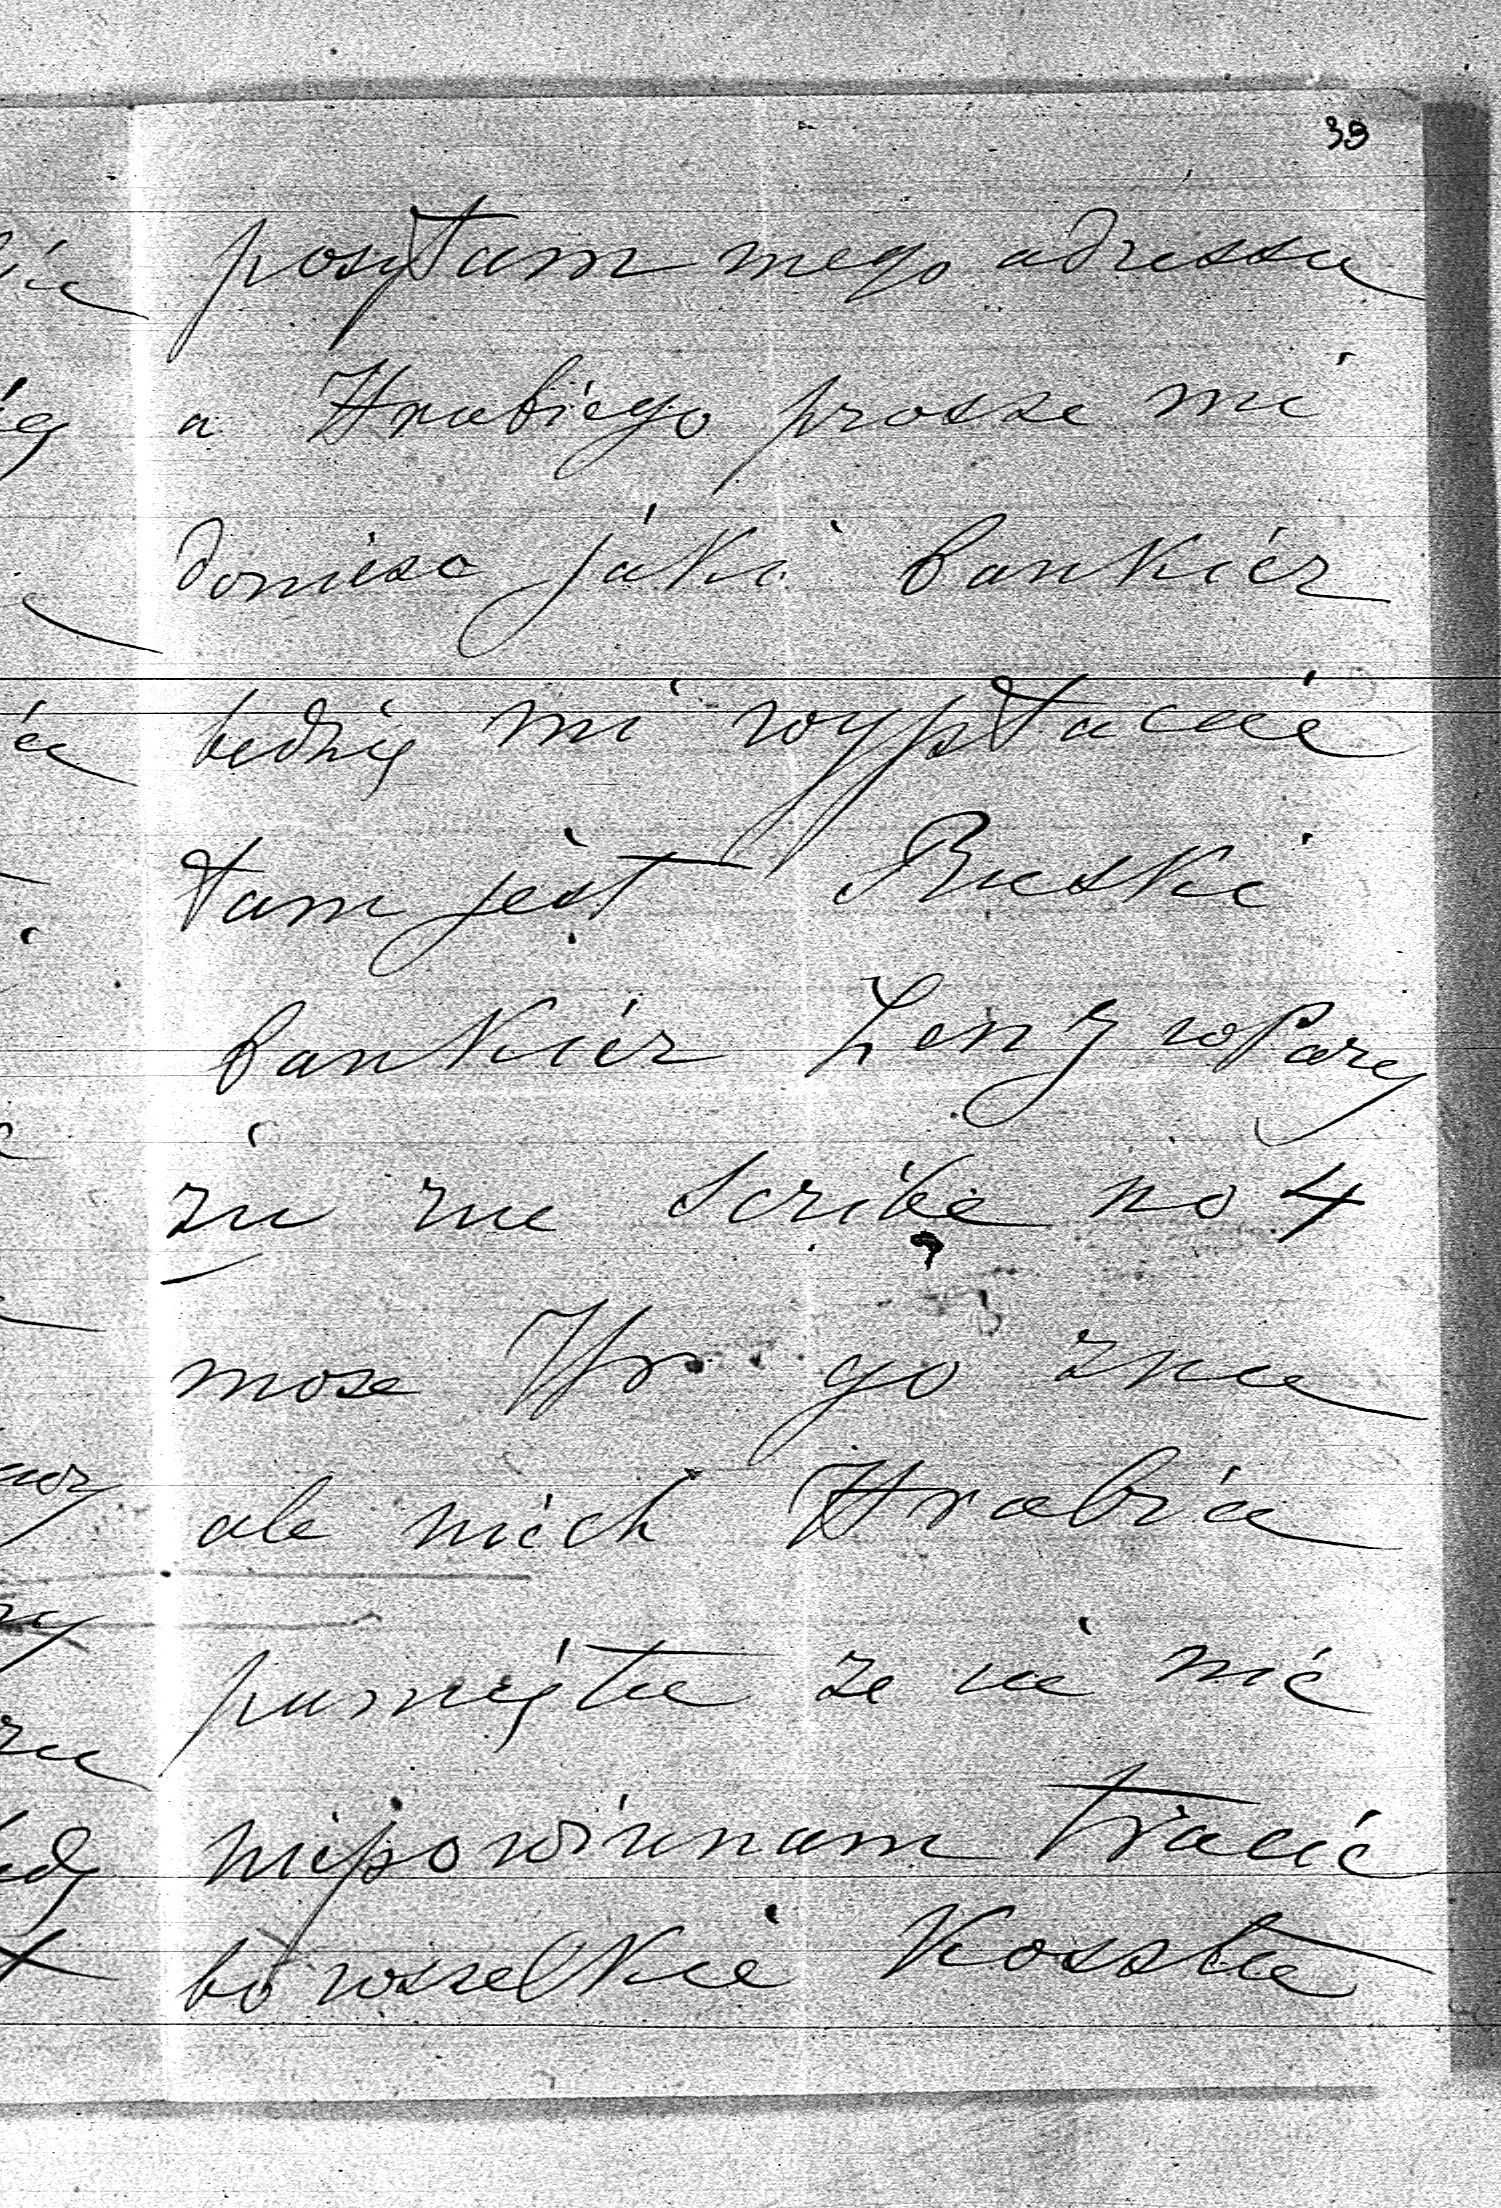 39
posyłam mego adressu
a Hrabiego prosze mi
doniesc jaki bankier
bedzię mi wypłacac
tam jest Ruski
bankier Zeng w Pary
zu rue Scribe no 4
moze Hr. go zna
ale niech Hrabia
pamięta ze ia nic
niepowinnam tracić
bo wszelkie koszta